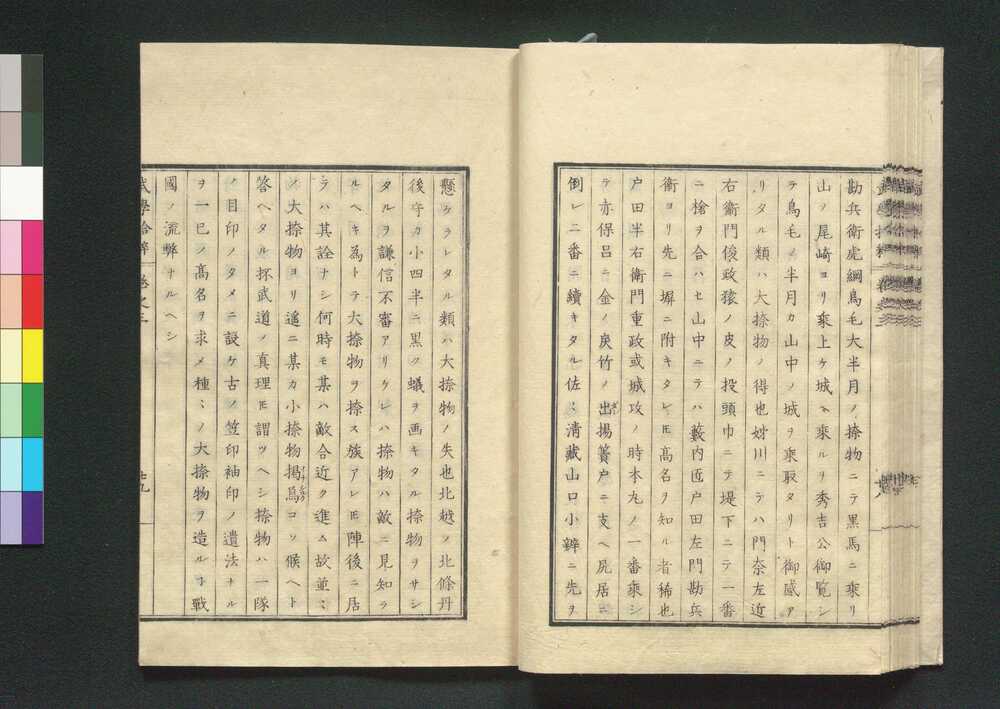 勘兵衛虎綱鳥毛大半月ノ捺物ニテ黒馬ニ乘リ
山ノ尾崎ヨリ乘上ケ城ヘ乘ルリ秀吉公御覧シ
テ鳥毛ノ半月カ山中ノ城ヲ乘取タリト御感ア
リタル類ハ大捺物ノ得也姉川ニテハ門奈左近
右衞門俊政猿ノ皮ノ投頭巾ニテ堤下ニテ一番
ニ槍ヲ合ハセ山中ニテハ藪内匠戸田左門勘兵
衞ヨリ先ニ塀ニ附キタレ𪜈高名ヲ知ル者稀也
戸田半右衛門重政或城攻ノ時本丸ノ一番乘シ
テ赤保呂ニ金ノ戻竹ノ出揚簀戸ニ支ヘ尻居ニ
倒レ二番ニ續キタル佐〻淸藏山口小辨ニ先ヲ
懸ケラレタル類ハ大捺物ノ失也北越ノ北條丹
後守カ小四半ニ黒ク蟻ヲ画キタル捺物ヲサシ
タルヲ謙信不審アリケレハ捺物ハ敵ニ見知ラ
ルヘキ為トテ大捺物ヲ捺ス族アレ𪜈陣後ニ居
ラハ其詮ナシ何時モ某ハ敵合近ク進ム故並〻
ノ大捺物ヨリ遙ニ某カ小捺物掲焉コソ候ヘト
答ヘタル抔武道ノ真理𪜈謂ツヘシ捺物ハ一隊
ノ目印ノタメニ設ケ古ノ笠印袖印ノ遺法ナル
ヲ一己ノ髙名ヲ求メ種〻ノ大捺物ヲ造ルヿ戰
國ノ流弊ナルヘシ
武學拾粹 卷之三 廿九